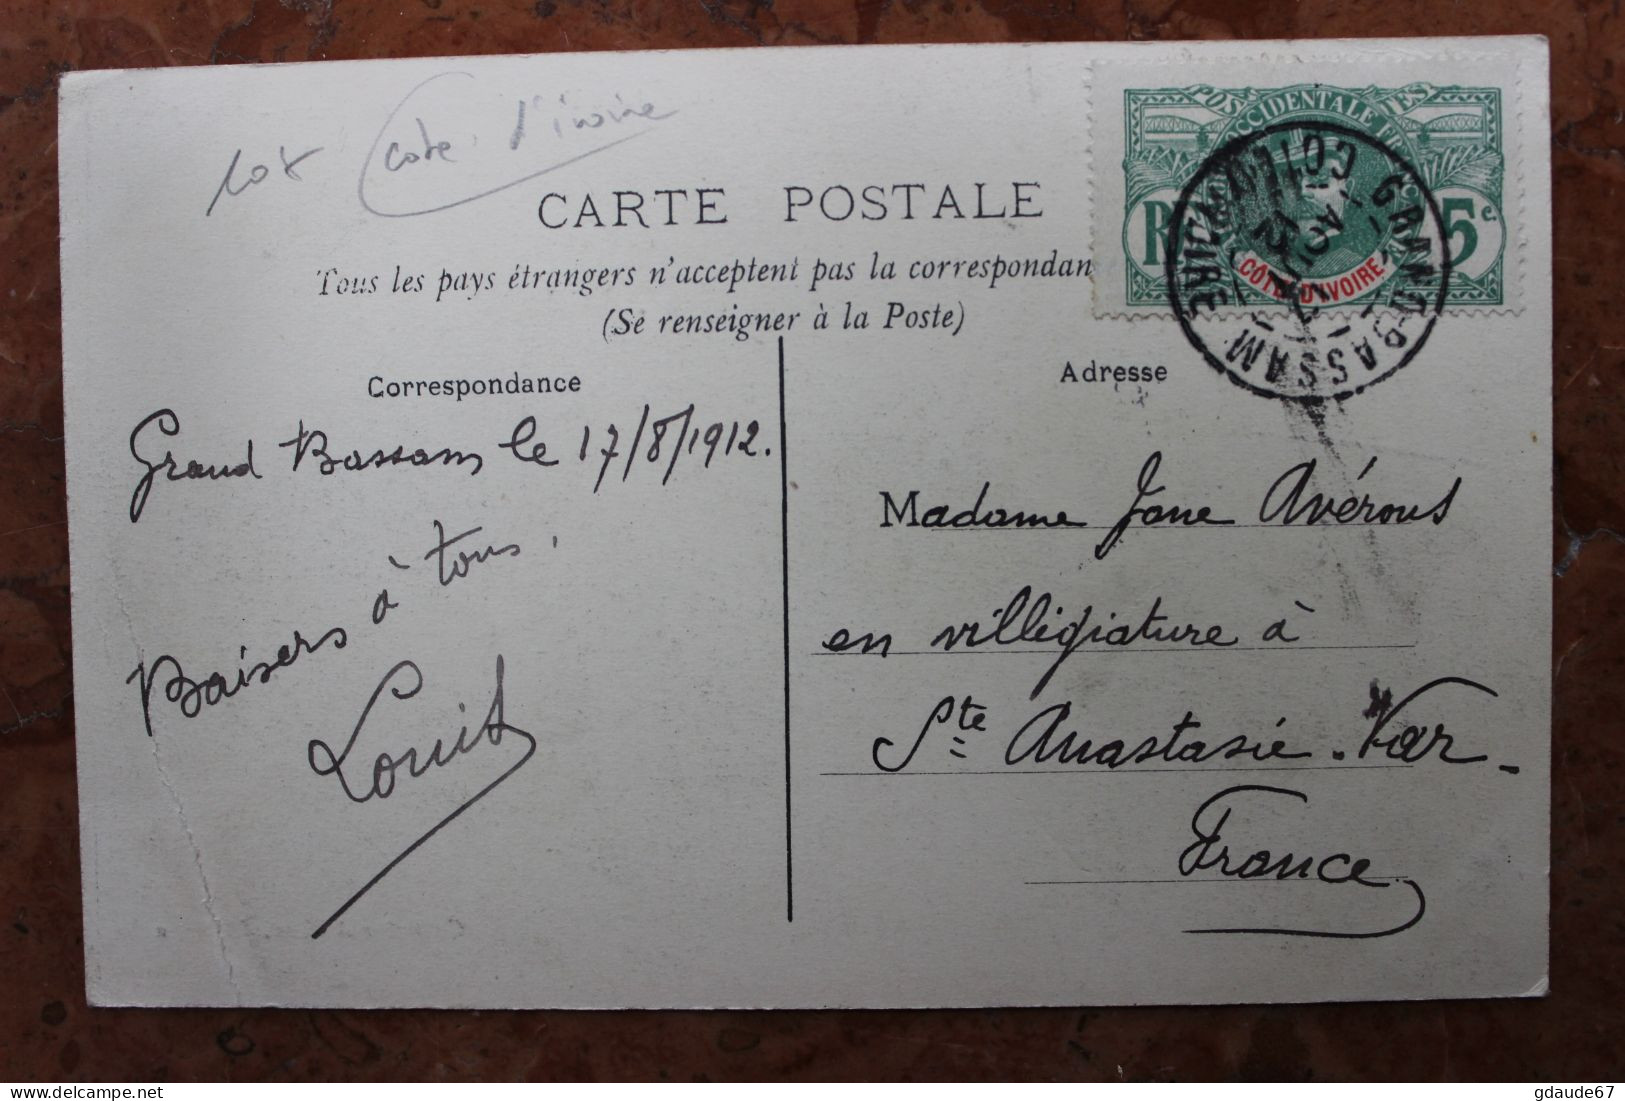 Cote d'ivoire
CARTE POSTALE
Tous les pays étrangers n'acceptent pas la correspondan
(Se renseigner à la Poste)
Correspondance
Grand Bassam le 17/8/1912.
Baisers à tous.
Louis
POSTES
OCCIDENTALE FR
5c
CÔTE D'IVOIRE
GRAND-BASSAM
COTE D'IVOIRE
Adresse
Madame Jane Avérous
en villégiature à
Ste Anastasie - Var -
France
gdaude67